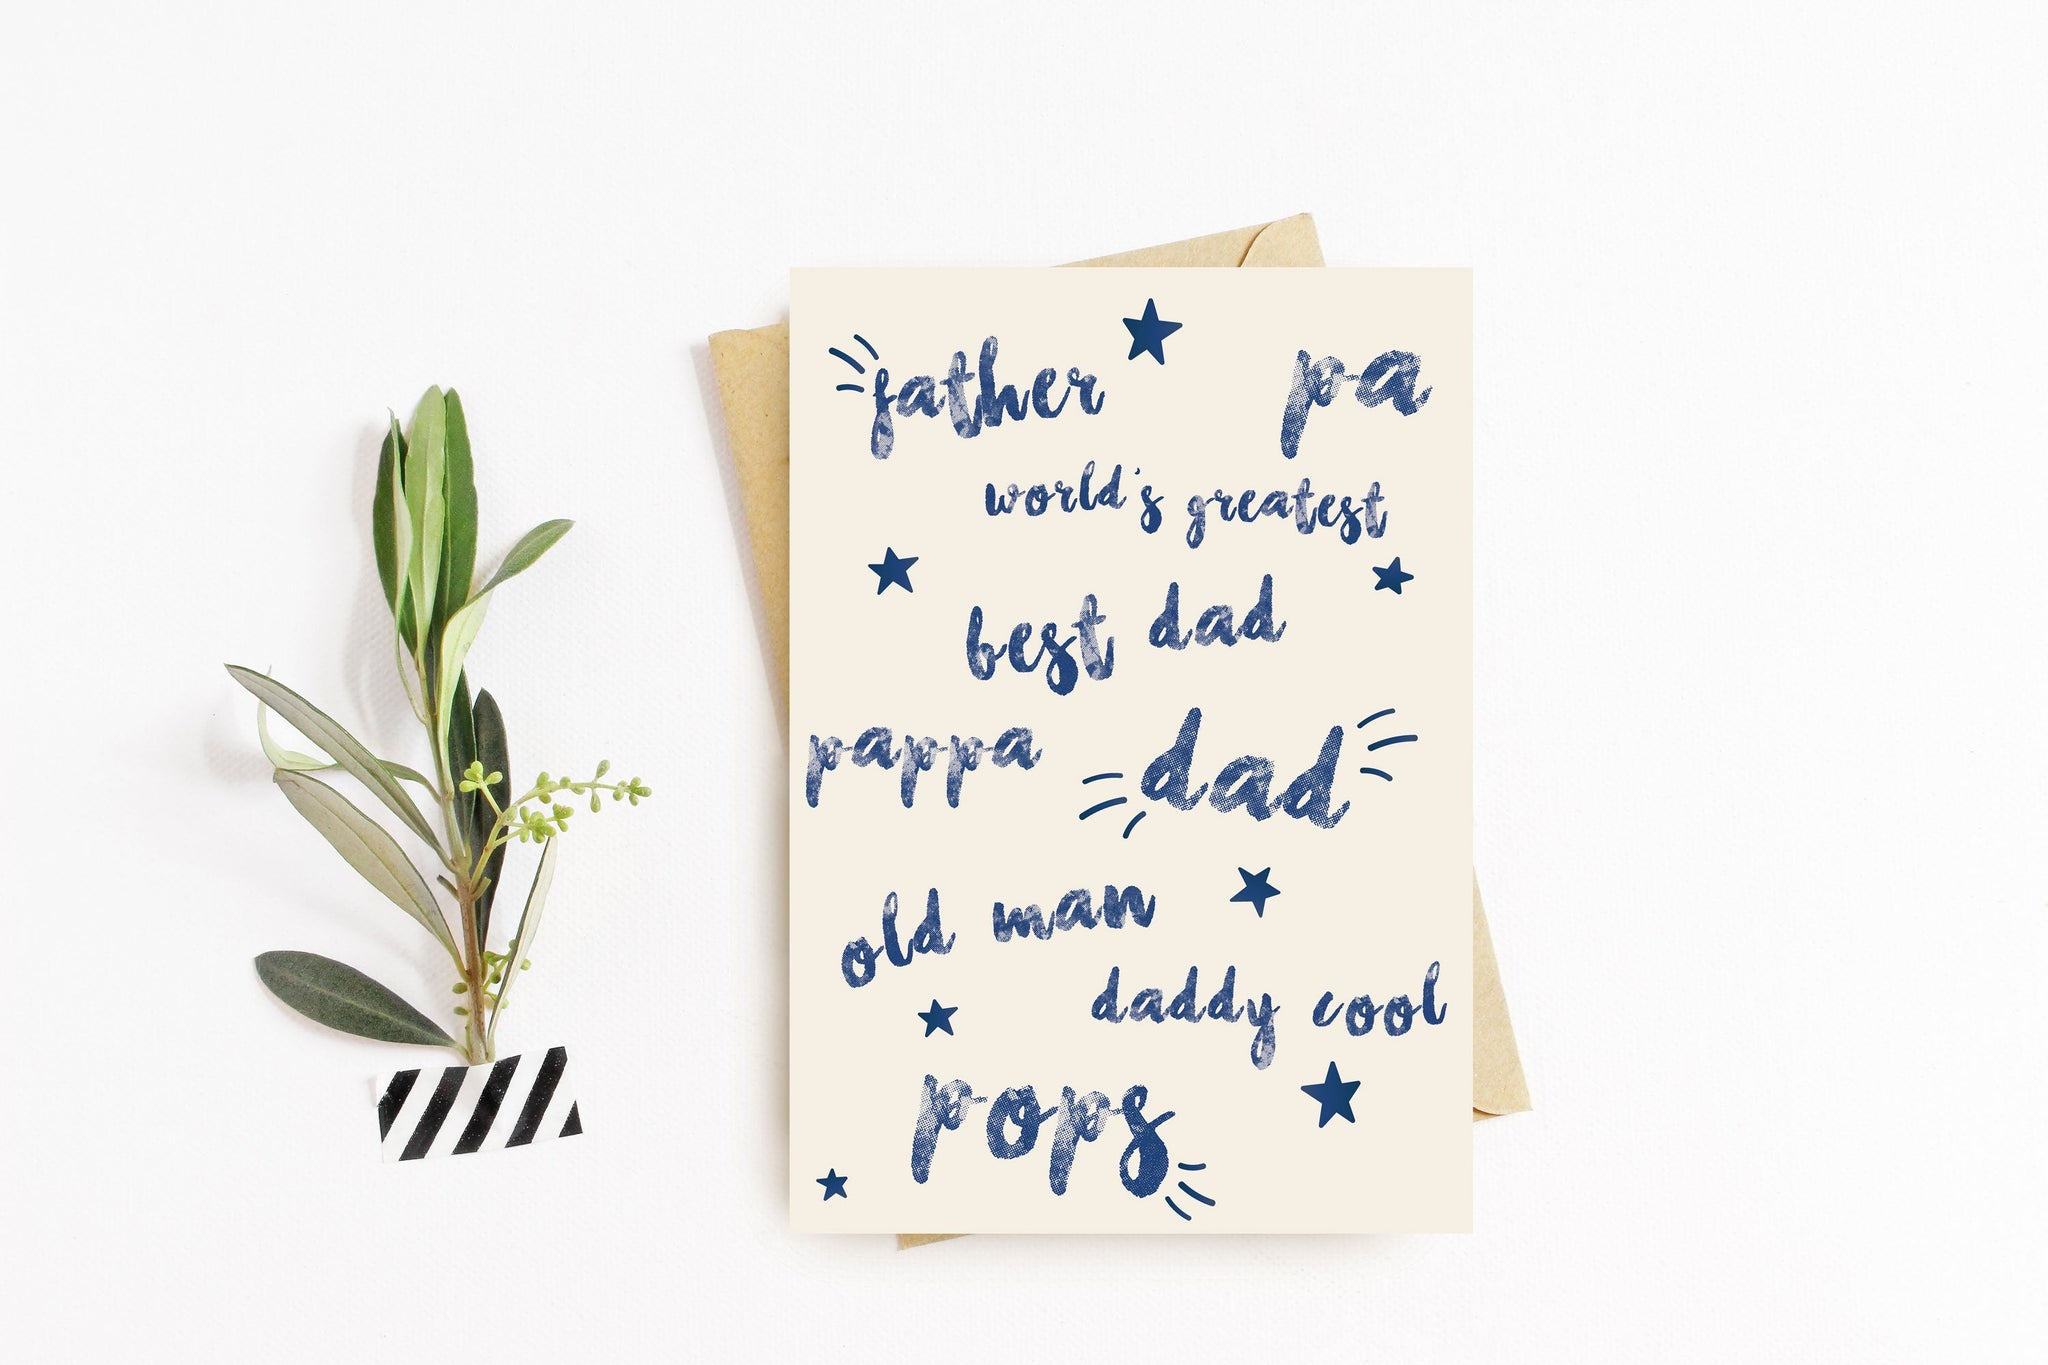 father
pa
world's greatest
best dad
pappa
dad
old man
daddy cool
pops